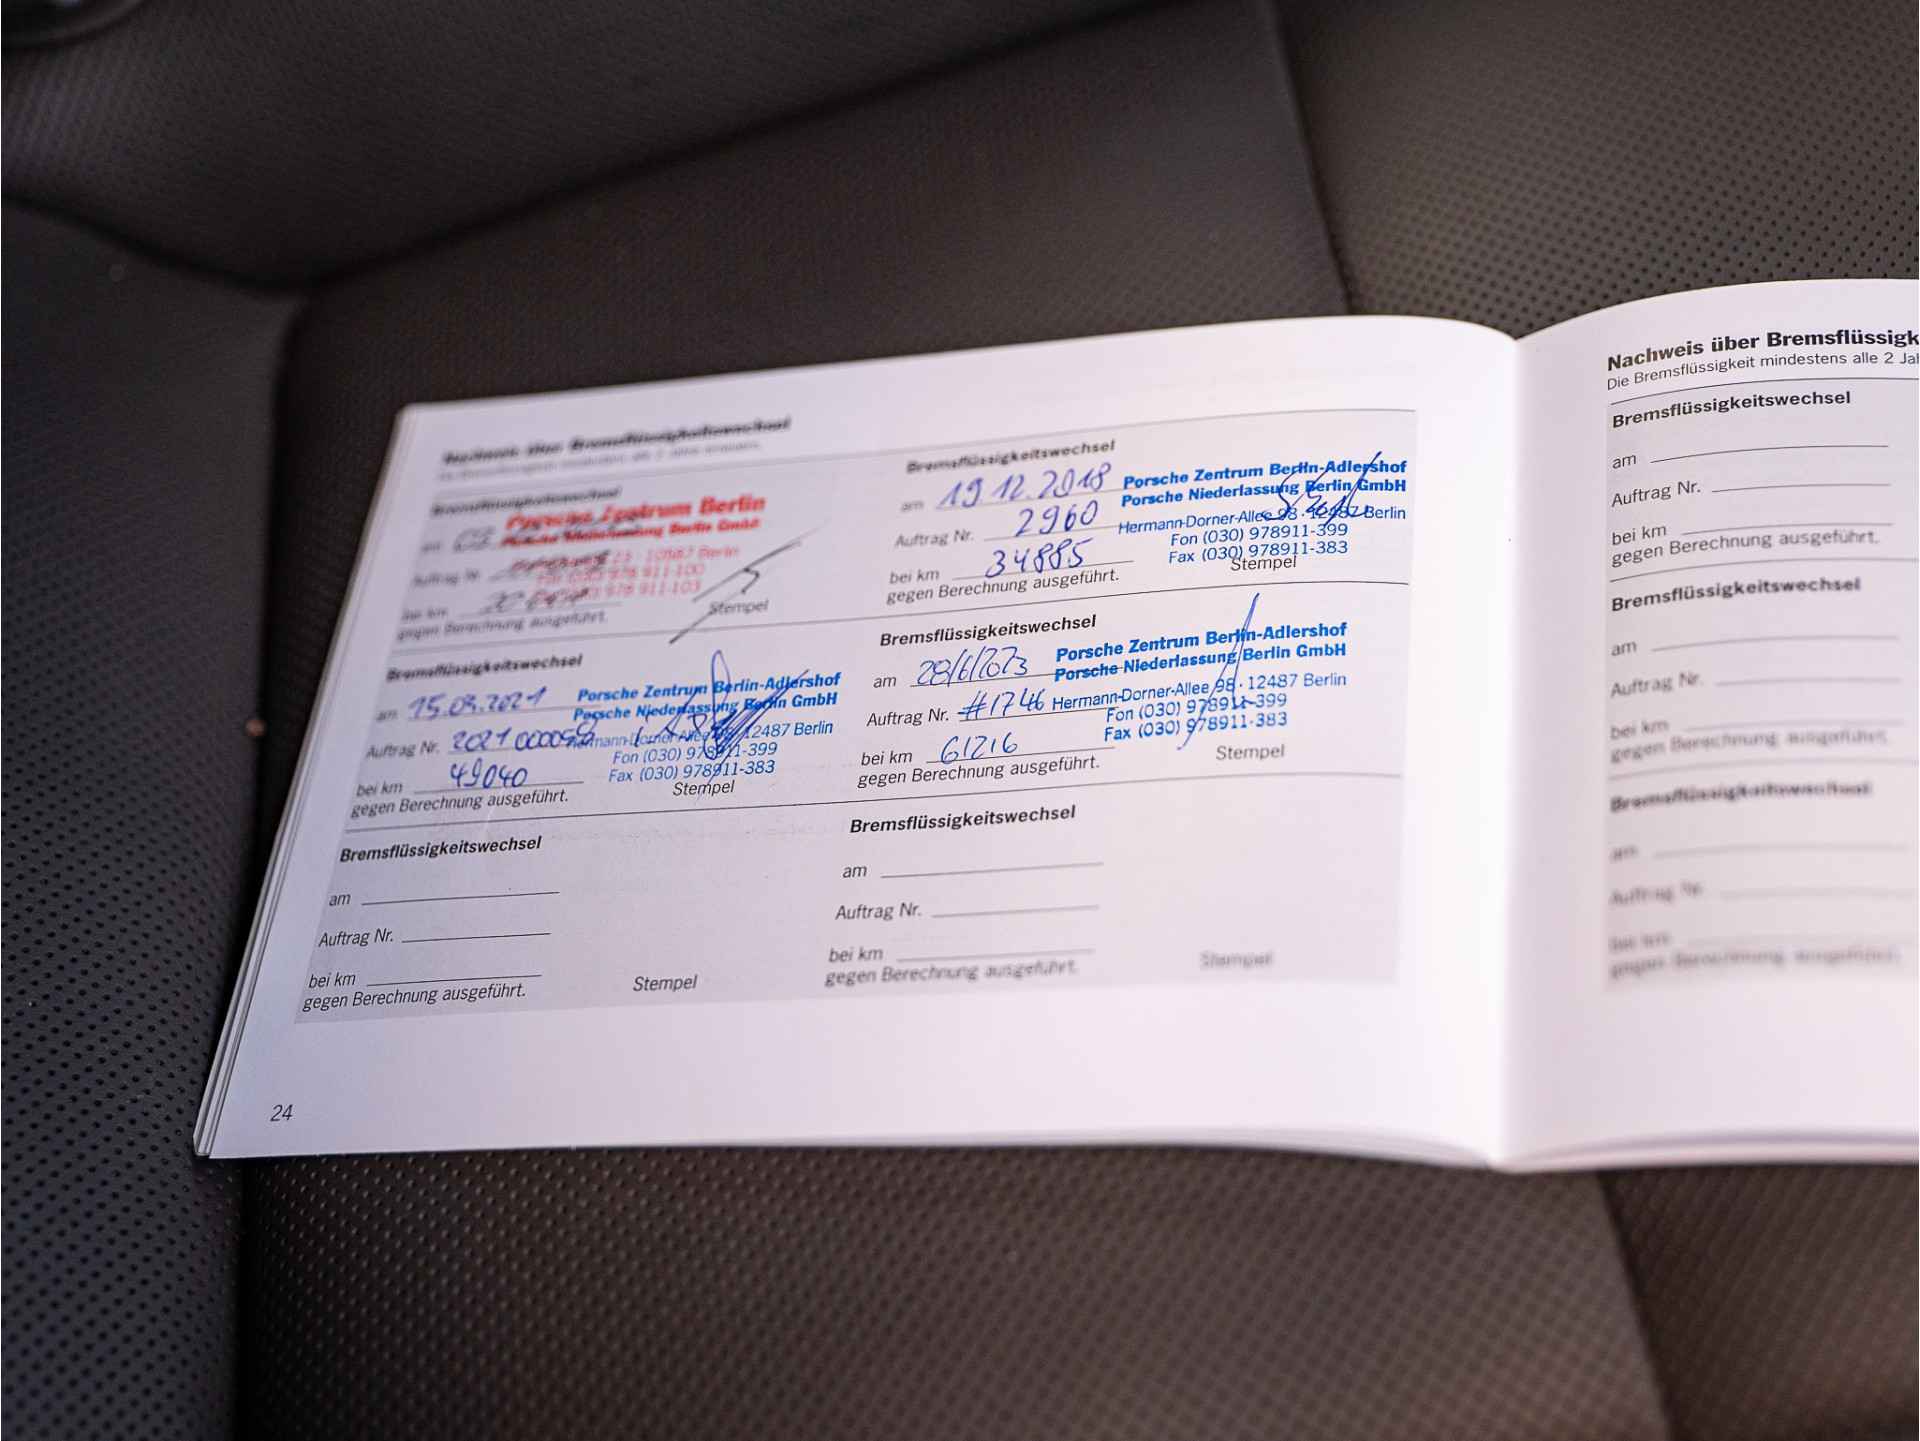 Nachweis über Bremsflüssigkeitswechsel
Bremsflüssigkeitswechsel
Porsche Zentrum Berlin
Porsche Niederlassung Berlin GmbH
am
10587 Berlin
Auftrag Nr.
Fon (030) 978 911-100
Fax (030) 978 911-103
bei km
gegen Berechnung ausgeführt.
Stempel
Bremsflüssigkeitswechsel
am 19.12.2018
Auftrag Nr. 2960
bei km 34885
gegen Berechnung ausgeführt.
Porsche Zentrum Berlin-Adlershof
Porsche Niederlassung Berlin GmbH
Hermann-Dorner-Allee 98 · 12487 Berlin
Fon (030) 978911-399
Fax (030) 978911-383
Stempel
Bremsflüssigkeitswechsel
am 15.03.2021
Auftrag Nr.
bei km 49040
gegen Berechnung ausgeführt.
Porsche Zentrum Berlin-Adlershof
Porsche Niederlassung Berlin GmbH
Hermann-Dorner-Allee 98 · 12487 Berlin
Fon (030) 978911-399
Fax (030) 978911-383
Stempel
Bremsflüssigkeitswechsel
am 28/6/2023
Auftrag Nr. #1746
bei km 61216
gegen Berechnung ausgeführt.
Porsche Zentrum Berlin-Adlershof
Porsche Niederlassung Berlin GmbH
Hermann-Dorner-Allee 98 · 12487 Berlin
Fon (030) 978911-399
Fax (030) 978911-383
Stempel
Bremsflüssigkeitswechsel
am
Auftrag Nr.
bei km
gegen Berechnung ausgeführt.
Stempel
Bremsflüssigkeitswechsel
am
Auftrag Nr.
bei km
gegen Berechnung ausgeführt.
Stempel
24
Nachweis über Bremsflüssigk
Die Bremsflüssigkeit mindestens alle 2 Jah
Bremsflüssigkeitswechsel
am
Auftrag Nr.
bei km
gegen Berechnung ausgeführt.
Bremsflüssigkeitswechsel
am
Auftrag Nr.
bei km
gegen Berechnung ausgeführt.
Bremsflüssigkeitswechsel
am
Auftrag Nr.
bei km
gegen Berechnung ausgeführt.